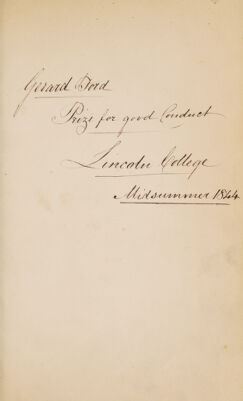 Gerard Ford
Prize for good Conduct
Lincoln College
Midsummer 1844